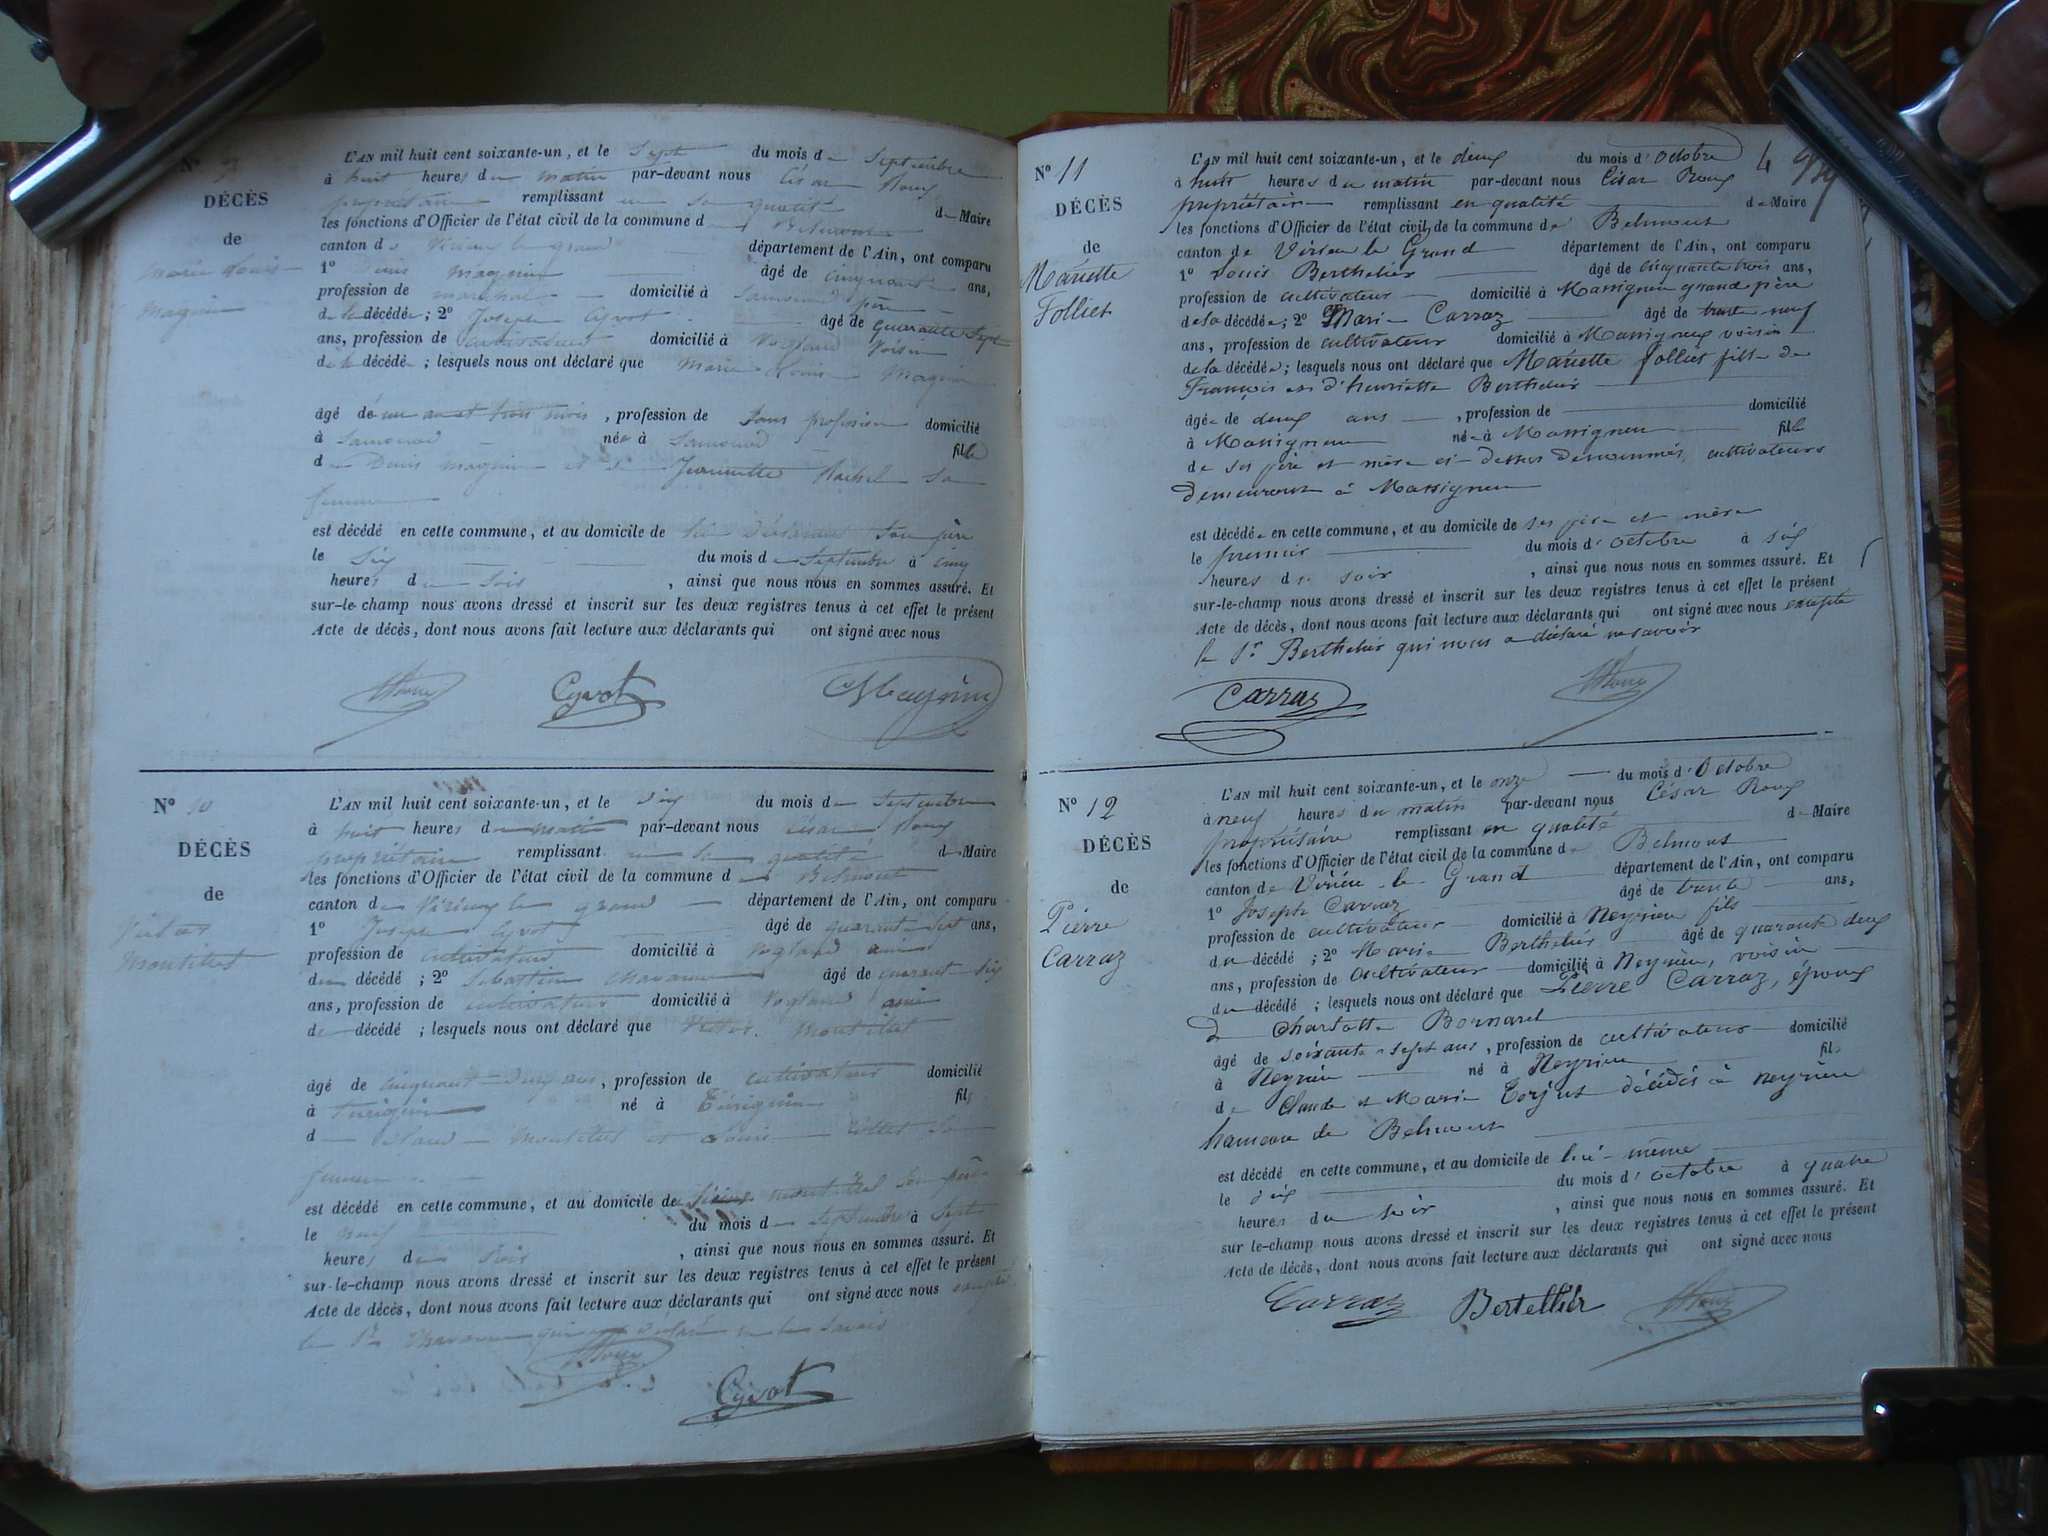 N° 9
DÉCÈS
de
Marie Louise
Magnin
L'AN mil huit cent soixante-un, et le Sept du mois de Septembre
à huit heures du matin par-devant nous César Roux
propriétaire remplissant en sa qualité de Maire
les fonctions d'Officier de l'état civil de la commune de Belmont
canton de Virieu le grand département de l'Ain, ont comparu
1° Denis Magnin âgé de cinquante ans,
profession de maréchal domicilié à père
de la décédée ; 2° Joseph Cyvot âgé de quarante Sept
ans, profession de cultivateur domicilié à Vogland voisin
de la décédée ; lesquels nous ont déclaré que Marie Louise Magnin
âgé de un an et trois mois , profession de Sans profession domicilié
à née à fille
de Denis Magnin et de Jeannette sa
femme
est décédé en cette commune, et au domicile de son père
le Six du mois de Septembre à cinq
heures du Soir , ainsi que nous nous en sommes assuré. Et
sur-le-champ nous avons dressé et inscrit sur les deux registres tenus à cet effet le présent
Acte de décès, dont nous avons fait lecture aux déclarants qui ont signé avec nous
Cyvot Magnin
N° 10
DÉCÈS
de
Montillet
L'AN mil huit cent soixante-un, et le dix du mois de Septembre
à huit heures du matin par-devant nous César Roux
propriétaire remplissant en sa qualité de Maire
les fonctions d'Officier de l'état civil de la commune de Belmont
canton de Virieu le grand département de l'Ain, ont comparu
1° Joseph Cyvot âgé de quarante sept ans,
profession de cultivateur domicilié à Vogland ami
du décédé ; 2° Sébastien Chavanne âgé de quarante six
ans, profession de cultivateur domicilié à Vogland ami
du décédé ; lesquels nous ont déclaré que Montillet
âgé de cinquante deux ans, profession de cultivateur domicilié
à né à fils
de Montillet et sa
femme
est décédé en cette commune, et au domicile de Montillet son
le neuf du mois de septembre à sept
heures du Soir , ainsi que nous nous en sommes assuré. Et
sur-le-champ nous avons dressé et inscrit sur les deux registres tenus à cet effet le présent
Acte de décès, dont nous avons fait lecture aux déclarants qui ont signé avec nous excepté
le Sr Chavanne qui a déclaré ne le savoir
Cyvot
N° 11
DÉCÈS
de
Mariette
Folliet
L'AN mil huit cent soixante-un, et le deux du mois d'octobre
à huit heures du matin par-devant nous César Roux
propriétaire remplissant en qualité de Maire
les fonctions d'Officier de l'état civil, de la commune de Belmont
canton de Virieu le Grand département de l'Ain, ont comparu
1° Louis Berthelier âgé de cinquante trois ans,
profession de cultivateur domicilié à Massigneu grand père
de la décédée ; 2° Marie Carraz âgé de trente neuf
ans, profession de cultivateur domicilié à Massigneu voisin
de la décédée ; lesquels nous ont déclaré que Mariette Folliet fille de
François et d'henriette Berthelier
âgée de deux ans , profession de domicilié
à Massigneu née à Massigneu fille
de ses père et mère ci-dessus dénommés, cultivateurs
demeurant à Massigneu
est décédée en cette commune, et au domicile de ses père et mère
le premier du mois d'octobre à six
heures du soir , ainsi que nous nous en sommes assuré. Et
sur-le-champ nous avons dressé et inscrit sur les deux registres tenus à cet effet le présent
Acte de décès, dont nous avons fait lecture aux déclarants qui ont signé avec nous excepté
le Sr Berthelier qui nous a déclaré ne savoir
Carraz
N° 12
DÉCÈS
de
Pierre
Carraz
L'AN mil huit cent soixante-un, et le onze du mois d'Octobre
à neuf heures du matin par-devant nous César Roux
propriétaire remplissant en qualité de Maire
les fonctions d'Officier de l'état civil de la commune de Belmont
canton de Virieu-le-Grand département de l'Ain, ont comparu
1° Joseph Carraz âgé de trente ans,
profession de cultivateur domicilié à Neyrieu fils
du décédé ; 2° Marie Berthelier âgé de quarante deux
ans, profession de Cultivateur domicilié à Neyrieu, voisin
du décédé ; lesquels nous ont déclaré que Pierre Carraz, époux
de Charlotte Bornarel
âgé de soixante-sept ans , profession de cultivateur domicilié
à Neyrieu né à Neyrieu fils
de Claude et Marie Torjus décédés à Neyrieu
hameau de Belmont
est décédé en cette commune, et au domicile de lui-même
le dix du mois d'octobre à quatre
heures du soir , ainsi que nous nous en sommes assuré. Et
sur le-champ nous avons dressé et inscrit sur les deux registres tenus à cet effet le présent
Acte de décès, dont nous avons fait lecture aux déclarants qui ont signé avec nous
Carraz Bertellier